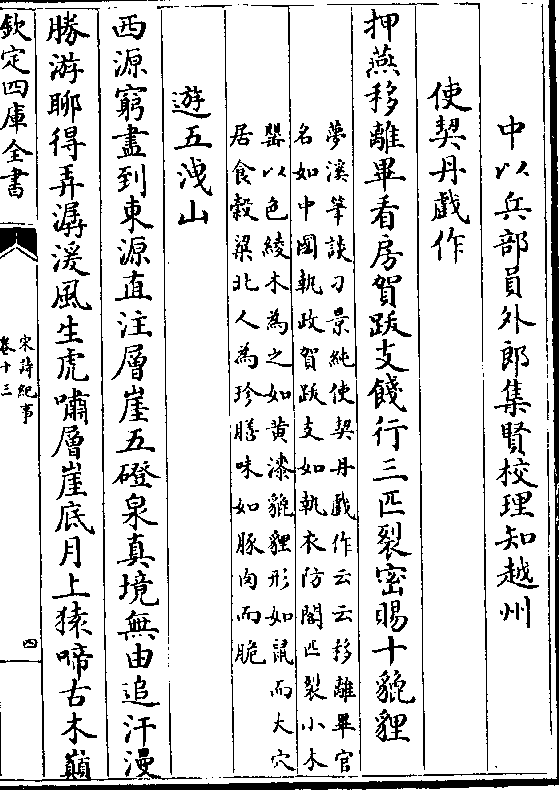 中以兵部員外郎集賢校理知越州
使契丹戲作
押燕移離畢看房賀跋支餞行三匹裂密賜十貔貍
夢溪筆談刁景純使契丹戲作云云移離畢官
名如中國執政賀跋支如執衣防閤匹裂小木
罌以色綾木為之如黄漆貔貍形如鼠而大穴
居食穀粱北人為珍膳味如豚肉而脆
遊五洩山
西源窮盡到東源直注層崖五磴泉真境無由追汗漫
勝游聊得弄潺湲風生虎嘯層崖底月上猿啼古木巔
欽定四庫全書
宋詩紀事
卷十三
四